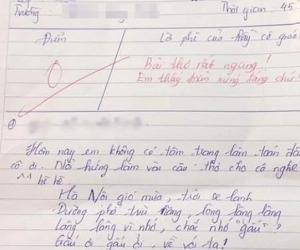 Trường:
Thời gian: 45
Điểm
Lời phê của thầy cô giáo
0
Bài thơ rất ngượng!
Em thấy rung rung chứ!
Hôm nay em không có tâm trạng làm toán đâu
cô ơi. Nổi hứng làm vài câu thơ cho cô nghe
^^ hề hề
Hà Nội gió mùa, trời se lạnh
Đường phố trũi nồng, lòng lâng lâng
Lâng lâng vì nhớ, chắc nhớ gấu?
Gấu ơi gấu ơi, về với ta!